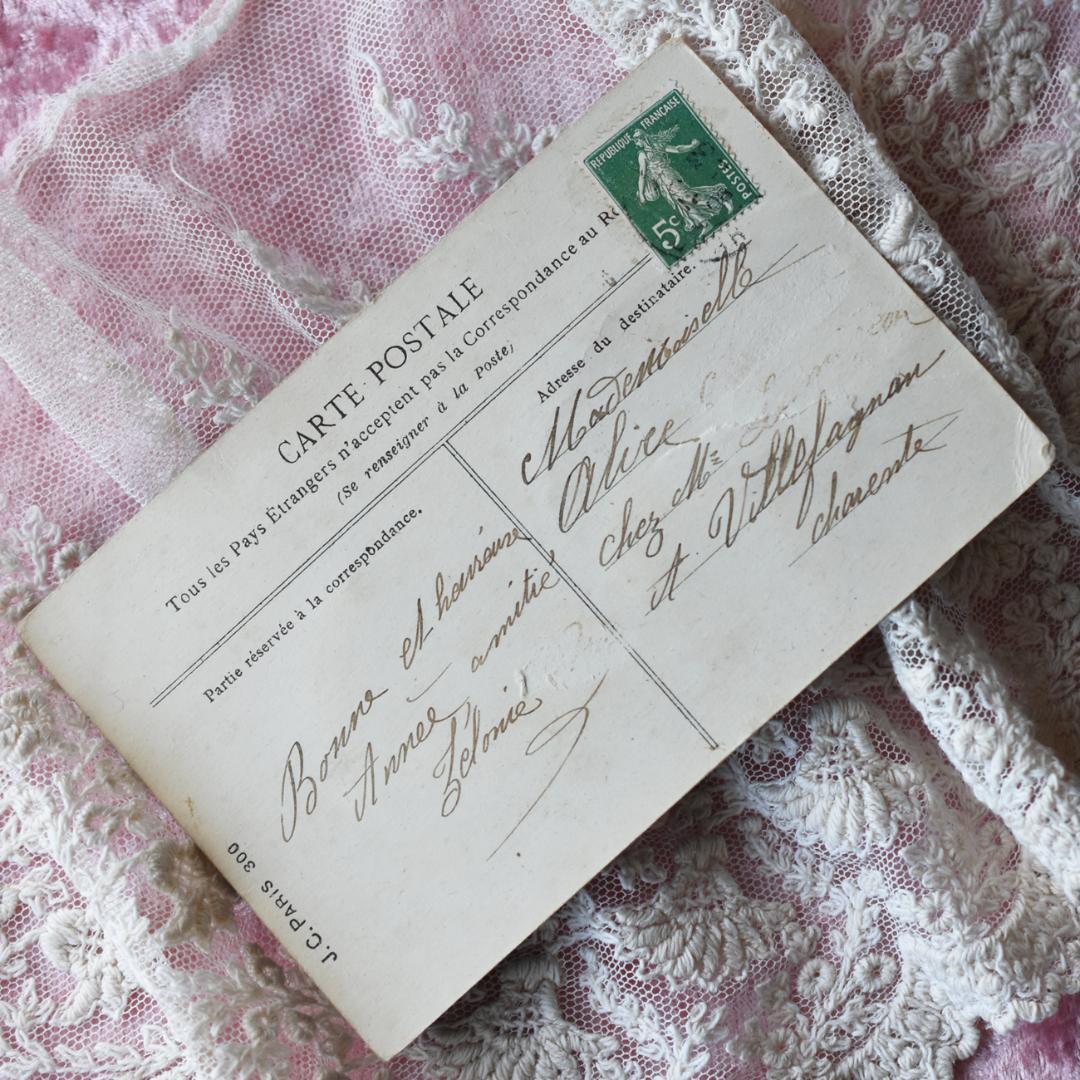 RÉPUBLIQUE FRANÇAISE
POSTES
5c
CARTE POSTALE
Tous les Pays Étrangers n'acceptent pas la Correspondance au
(Se renseigner à la Poste)
Partie réservée à la correspondance.
Adresse du destinataire.
Bonne et heureuse
Annee, amitié
Zélonie
Mademoiselle
Alice
chez Mr
A Villefagnan
charente
J.C. PARIS 300